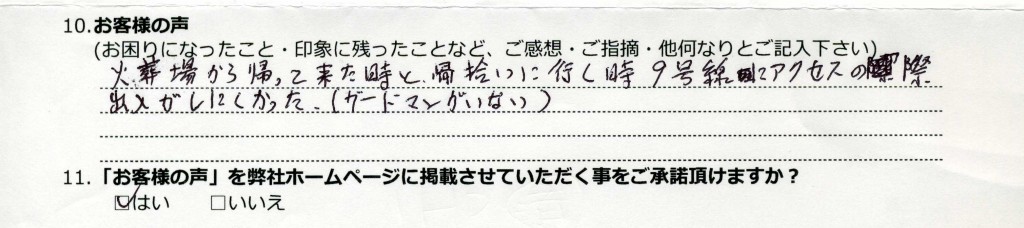 10.お客様の声
(お困りになったこと・印象に残ったことなど、ご感想・ご指摘・他何なりとご記入下さい)
火葬場から帰って来た時と、帰拾いに行く時 9号線にアクセスの際
出入がしにくかった.(ガードマンがいない)
11.「お客様の声」を弊社ホームページに掲載させていただく事をご承諾頂けますか？
☑はい □いいえ